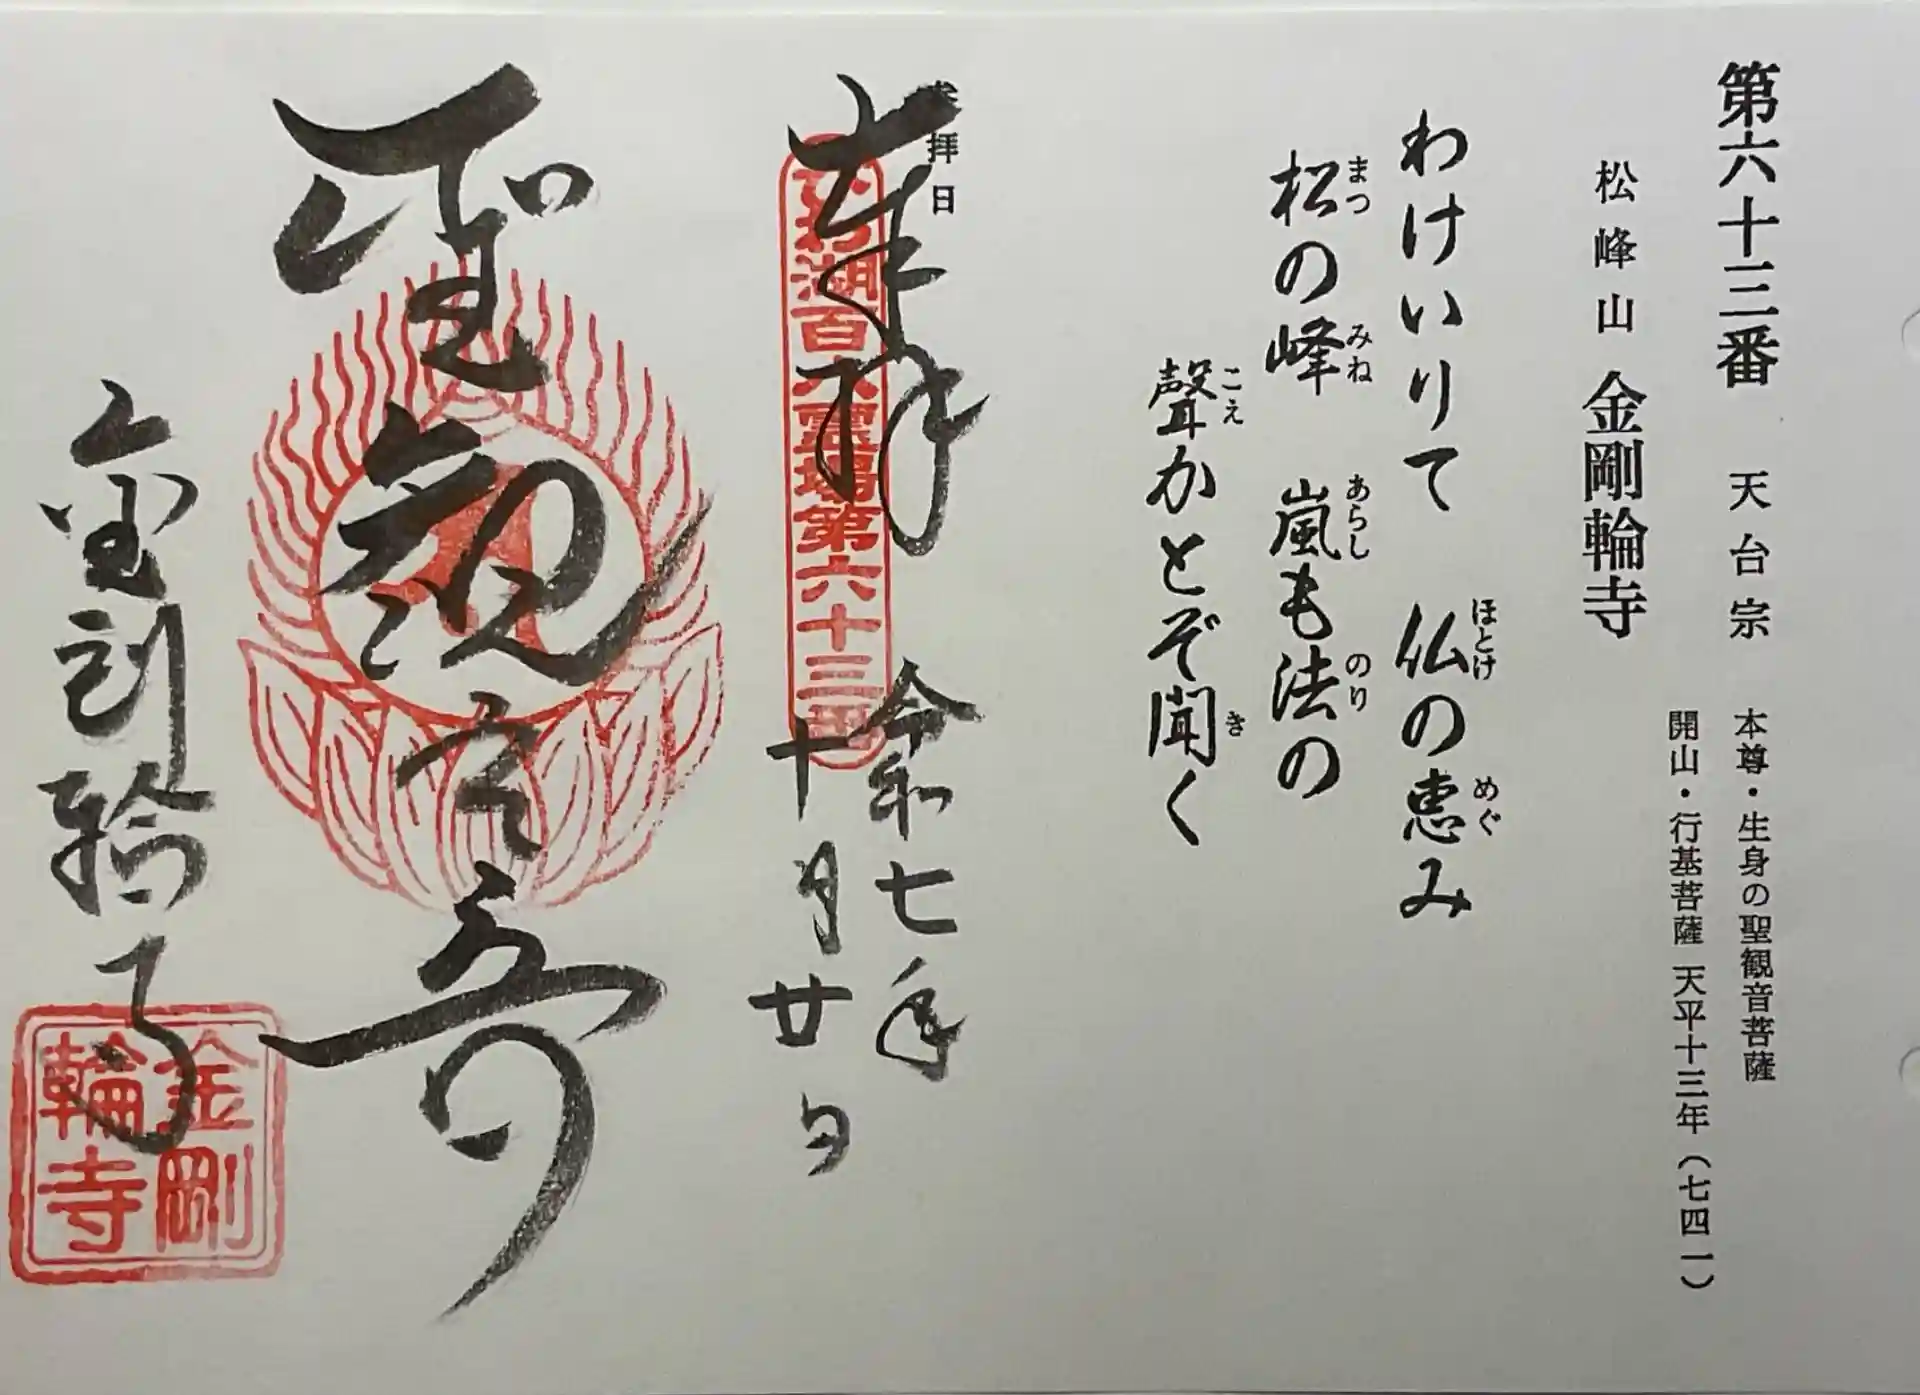 第六十三番 天台宗 本尊・生身の聖観音菩薩
開山・行基菩薩 天平十三年（七四一）
松峰山 金剛輪寺
わけいりて 仏の恵み
ほとけ めぐ
松の峰 嵐も法の
まつ みね あらし のり
聲かとぞ聞く
こえ き
参拝日
奉拝
びわ湖百八霊場第六十三番
令和七年
十月廿日
聖観音
金剛輪寺
金剛輪寺